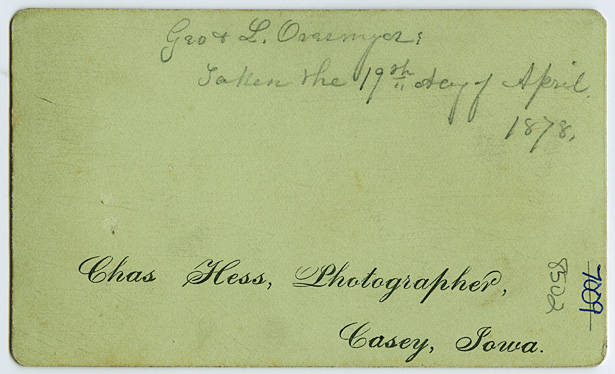 Geo & L. Overmyer:
Taken the 19th day of April.
1878.
Chas Hess, Photographer,
Casey, Iowa.
8502
7009